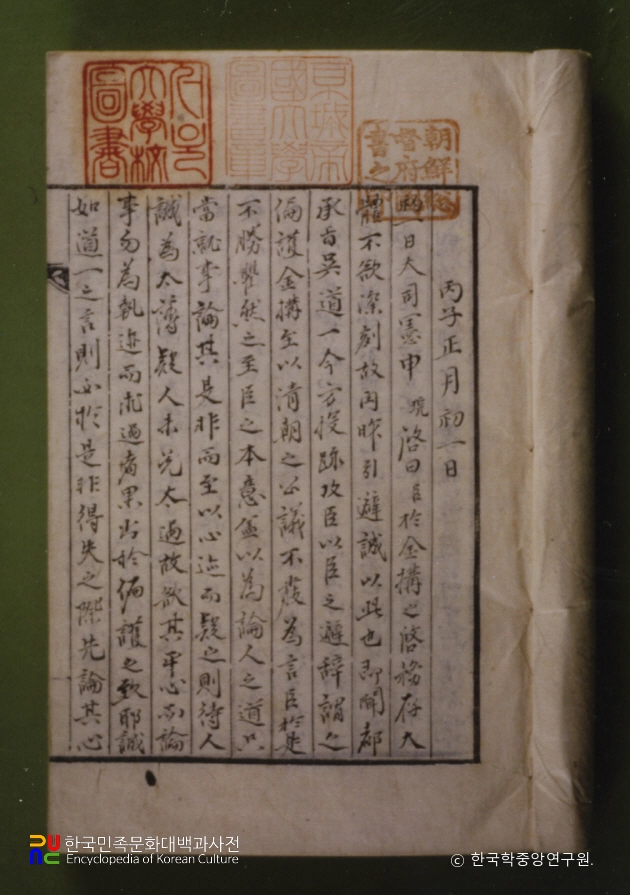 서울大學校圖書
京城帝國大學圖書章
朝鮮總督府圖書之印
丙子正月初一日
同日大司憲申琓啓曰臣於金構之啓務存大
體不欲深刻故因昨引避誠以此也卽聞都
承旨吳道一今方投疏攻臣以臣之避辭謂之
偏護金構至以淸朝之公議不長爲言臣於是
不勝瞿然之至臣之本意盖以爲論人之道只
當就事論其是非而至以心迹而疑之則待人
誠爲太薄疑人未免太過故欲其平心而論
事勿爲執迹而求過者果出於偏護之致耶誠
如道一之言則必於是非得失之際先論其心
한국민족문화대백과사전
Encyclopedia of Korean Culture
© 한국학중앙연구원.